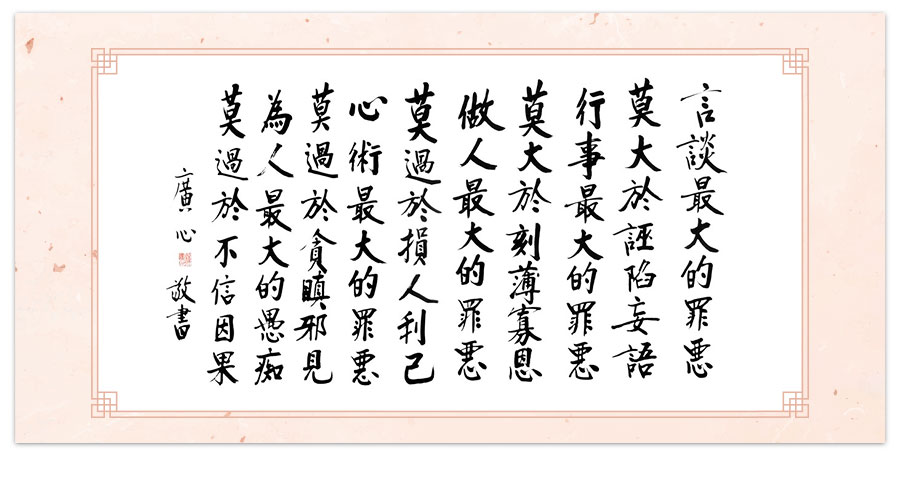 言談最大的罪惡
莫大於誣陷妄語
行事最大的罪惡
莫大於刻薄寡恩
做人最大的罪惡
莫過於損人利己
心術最大的罪惡
莫過於貪瞋邪見
為人最大的愚痴
莫過於不信因果
廣心 敬書